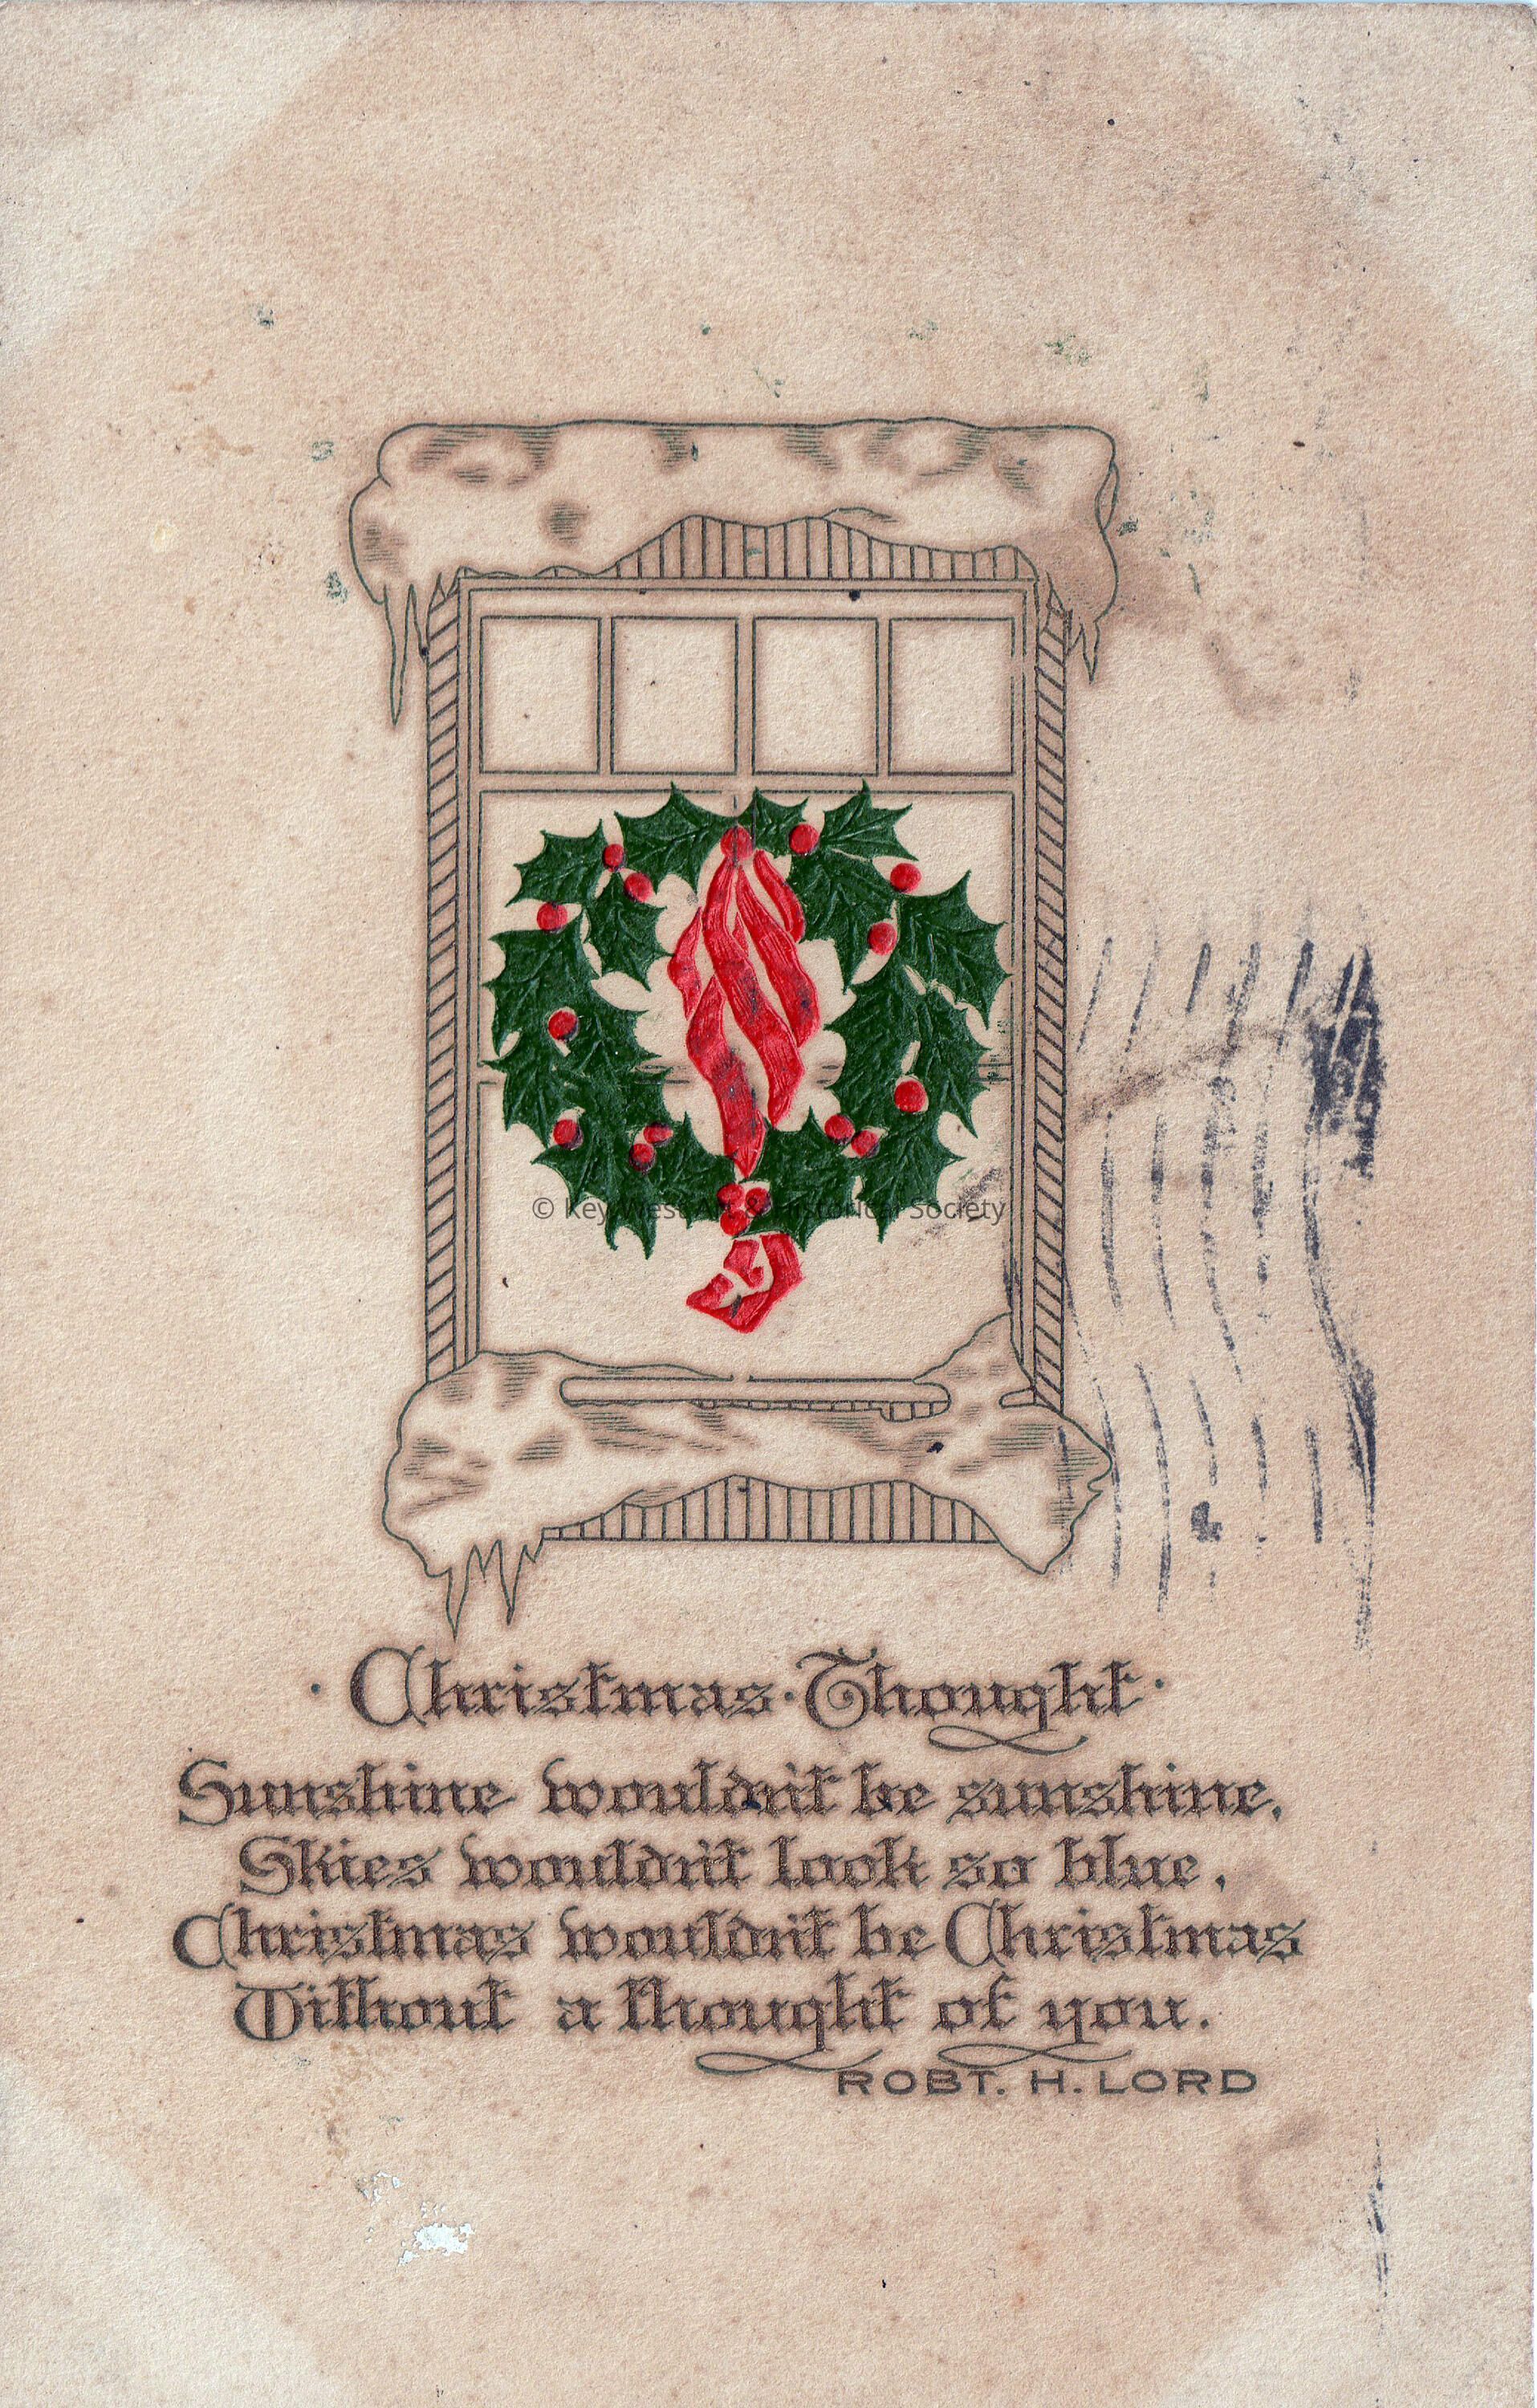 © Key West Art & Historical Society
· Christmas · Thought ·
Sunshine wouldn't be sunshine,
Skies wouldn't look so blue,
Christmas wouldn't be Christmas
Without a thought of you.
ROBT. H. LORD